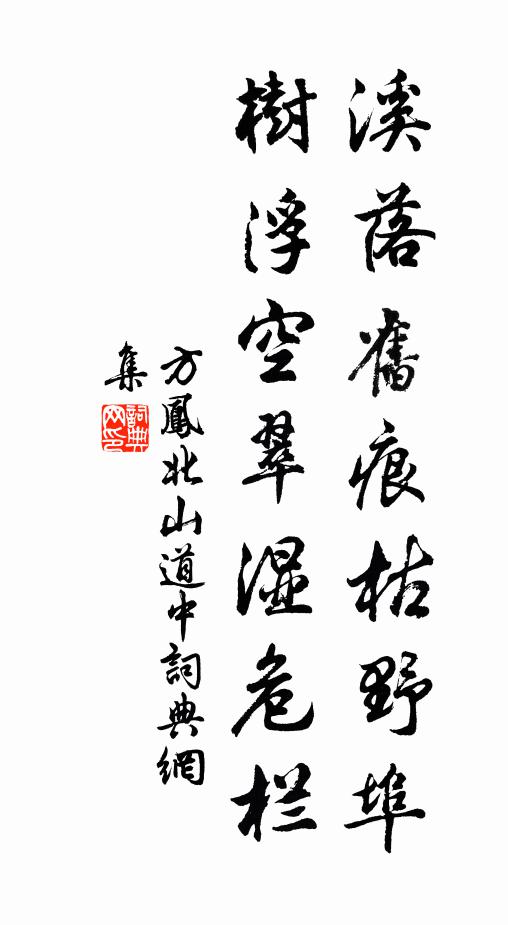 溪落舊痕枯野埠
樹浮空翠濕危栏
方鳳北山道中詞典網
集
詞典
网印